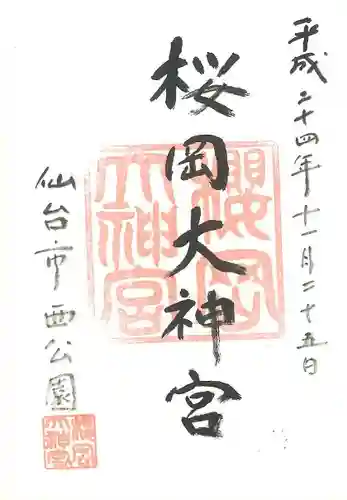 平成二十四年十一月二十五日
桜岡大神宮
櫻岡
大神宮
仙台市西公園
櫻岡
大神宮